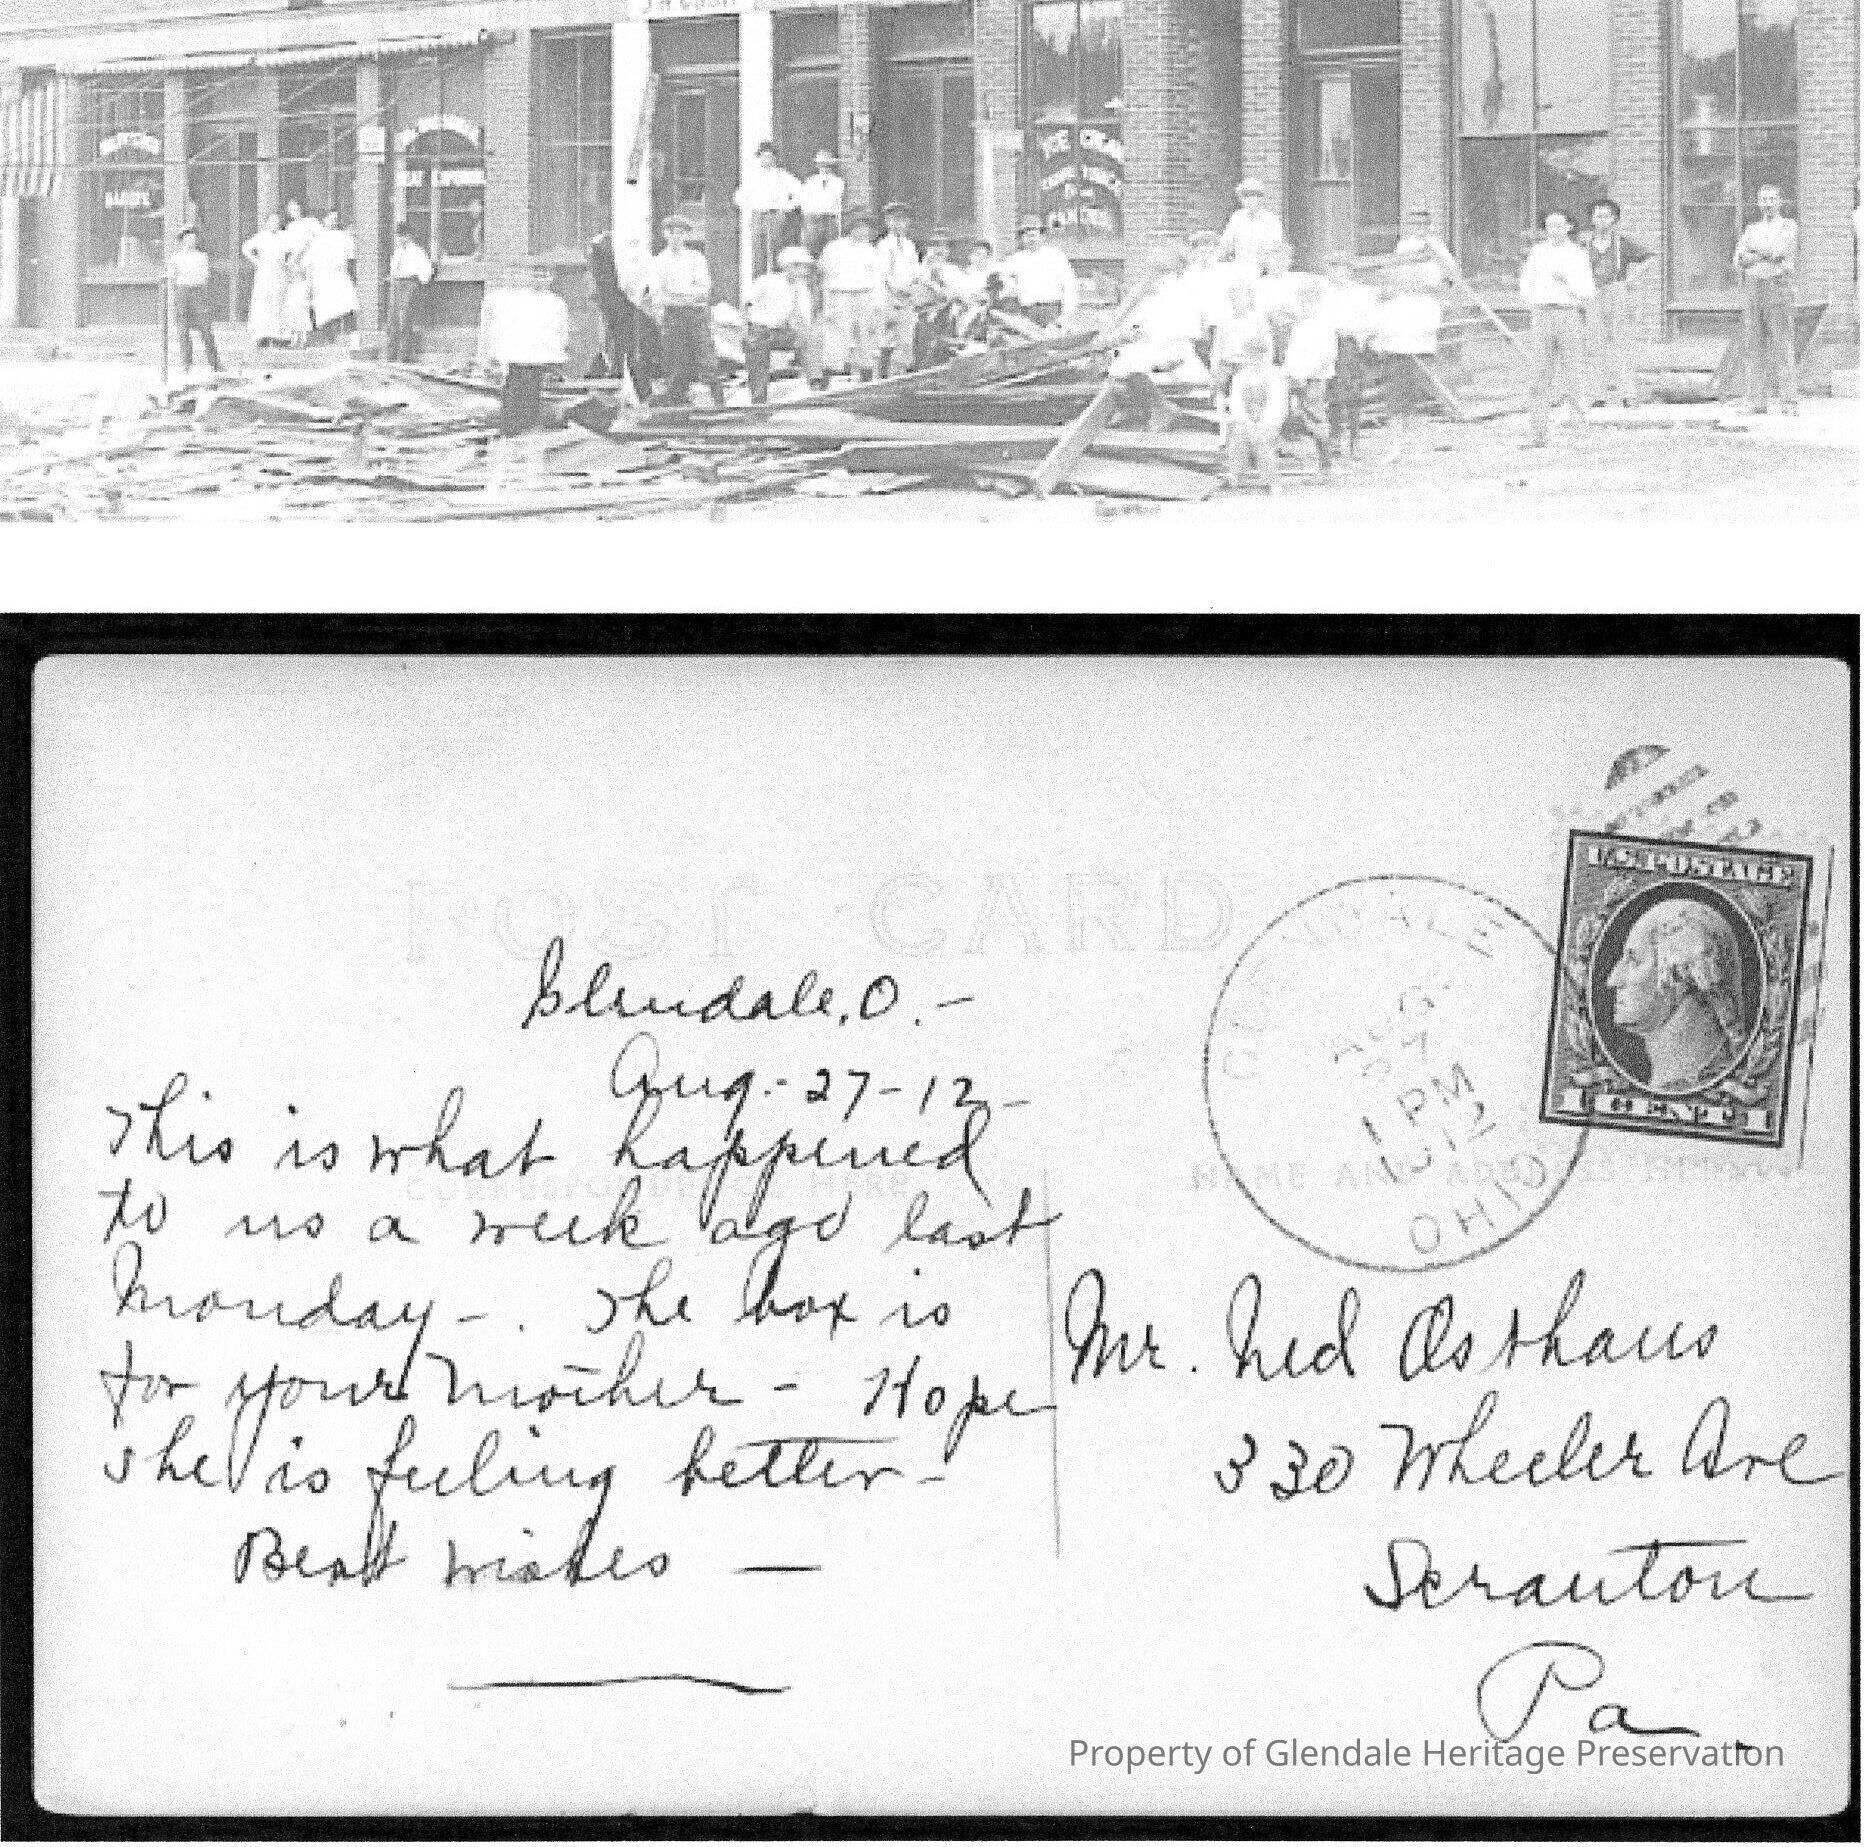 ICE CREAM
POST CARD
Glendale, O. -
Aug. - 27 - 12 -
This is what happened
to us a week ago last
Monday - . The box is
for your Mother - Hope
she is feeling better -
Best wishes —
CORRESPONDENCE HERE
GLENDALE
AUG.
27
1 PM
1912
OHIO
U.S. POSTAGE
1 CENT 1
NAME AND ADDRESS HERE
Mr. Ned Osthaus
330 Wheeler Ave
Scranton
Pa.
Property of Glendale Heritage Preservation